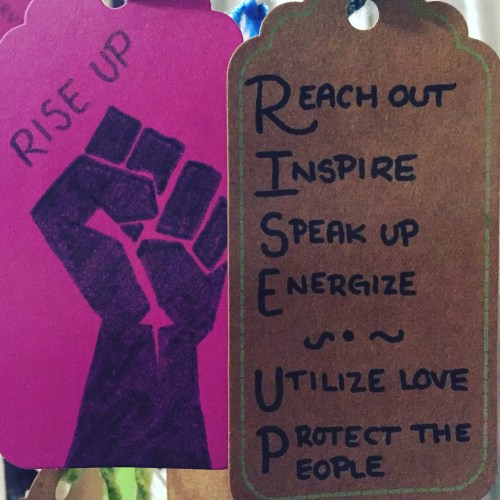 RISE UP
REACH OUT
INSPIRE
SPEAK UP
ENERGIZE
UTILIZE LOVE
PROTECT THE
PEOPLE